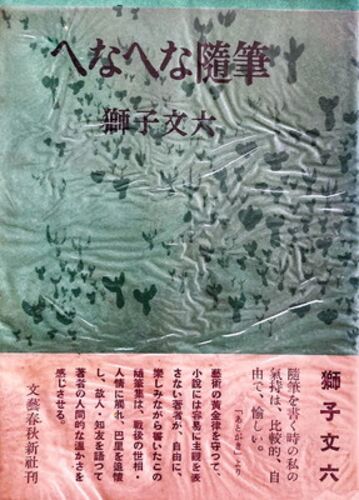 へなへな隨筆
獅子文六
獅子文六
隨筆を書く時の私の
氣持は、比較的、自
由で、愉しい。
「あとがき」より
藝術の黄金律を守つて、
小説には容易に主観を表
さない著者が、自由に、
樂しみながら書いたこの
隨筆集は、戰後の世相・
人情に觸れ、巴里を追懐
し、故人・知友を語つて
著者の人間的な温かさを
感じさせる。
文藝春秋新社刊